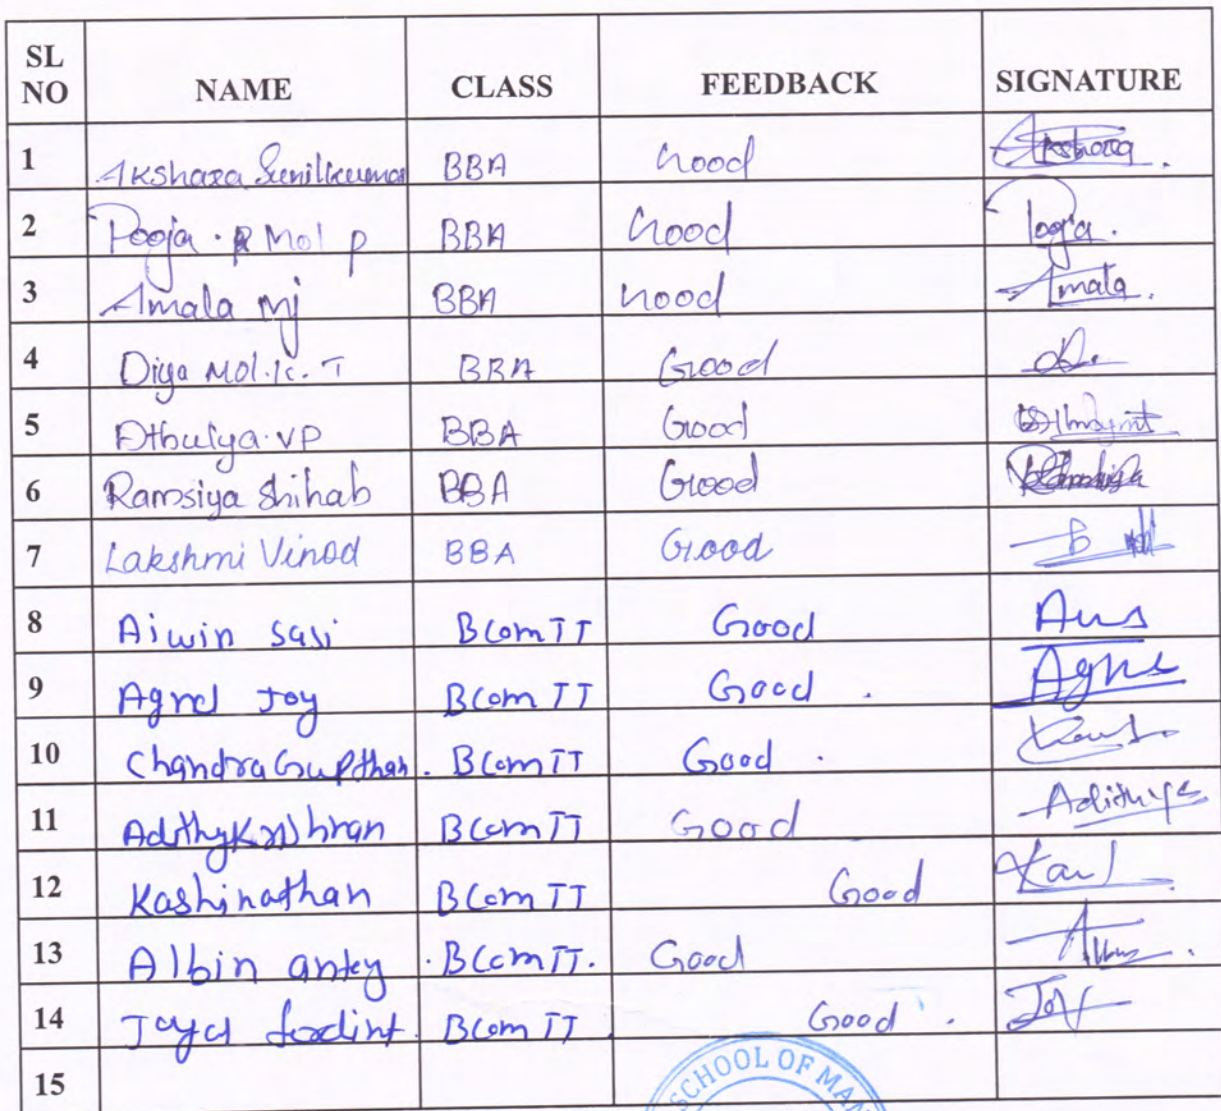 SL NO NAME CLASS FEEDBACK SIGNATURE
1 Akshara Sunilkumar BBA Good Akshara.
2 Pooja. Mol P BBA Good Pooja.
3 Amala Mj BBA Good Amala.
4 Diya Mol.K.T BBA Good
5 Athulya.VP BBA Good
6 Ramsiya Shihab BBA Good
7 Lakshmi Vinod BBA Good
8 Aiwin Sasi BCom TT Good
9 Agnel Joy BCom TT Good.
10 Chandra Gupthan. BCom TT Good.
11 Adithykrishnan BCom TT Good Adithya
12 Kashinathan BCom TT Good
13 Albin antey .BCom TT. Good
14 BCom TT. Good.
15
SCHOOL OF MAN